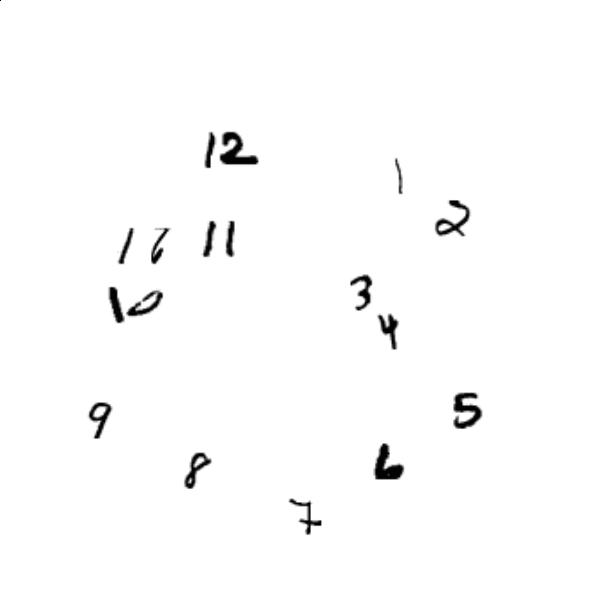 12
1
2
16 11
10
3
4
9
5
8
6
7